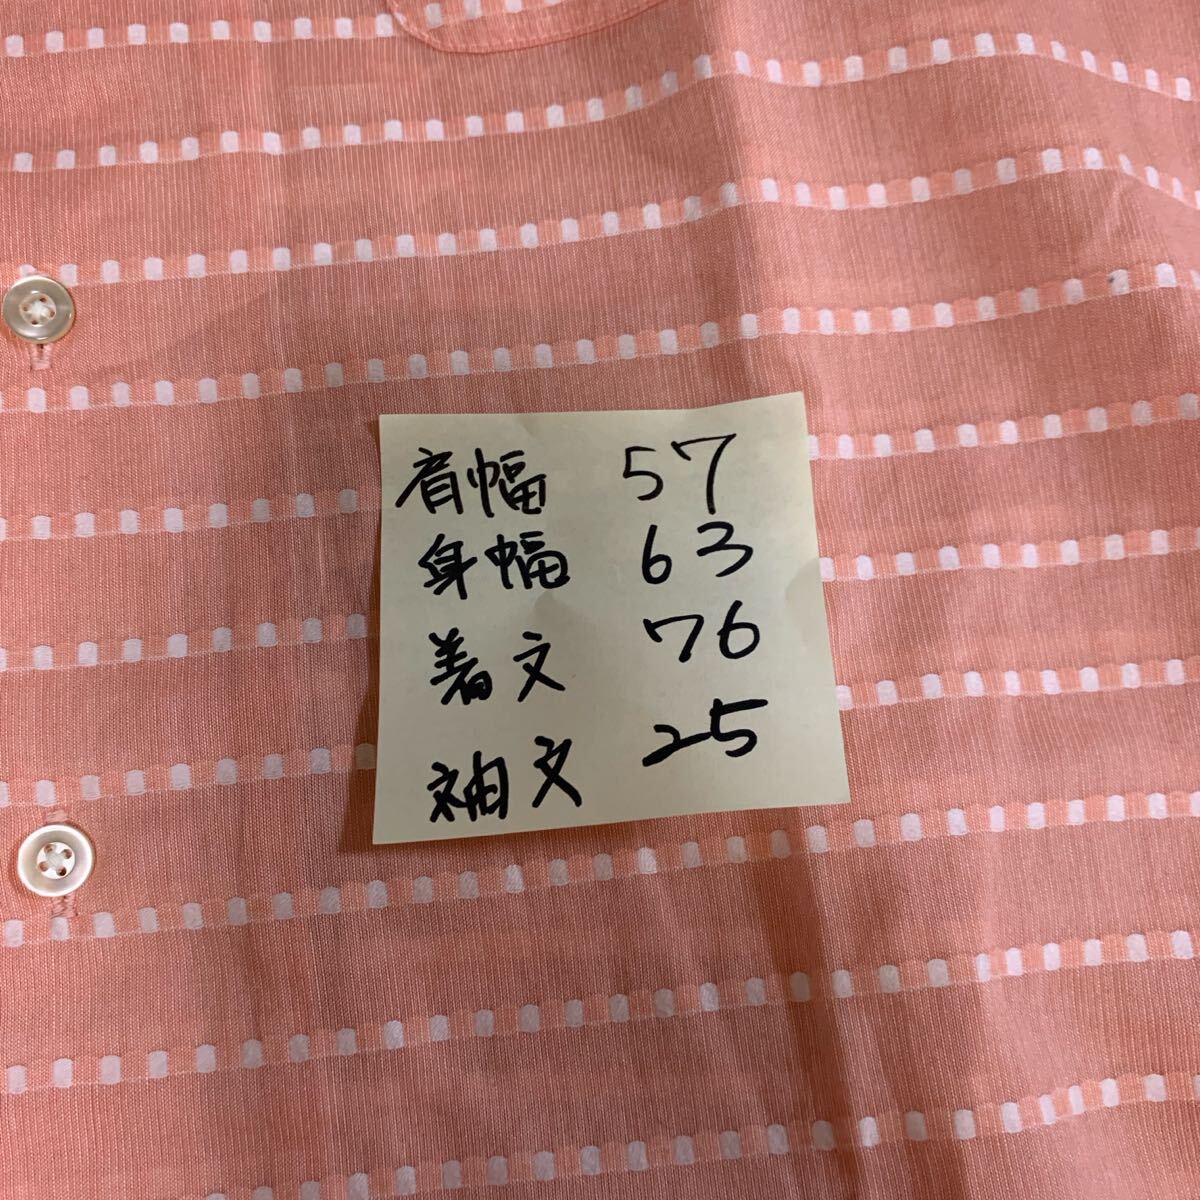 肩幅 57
身幅 63
着丈 76
袖丈 25